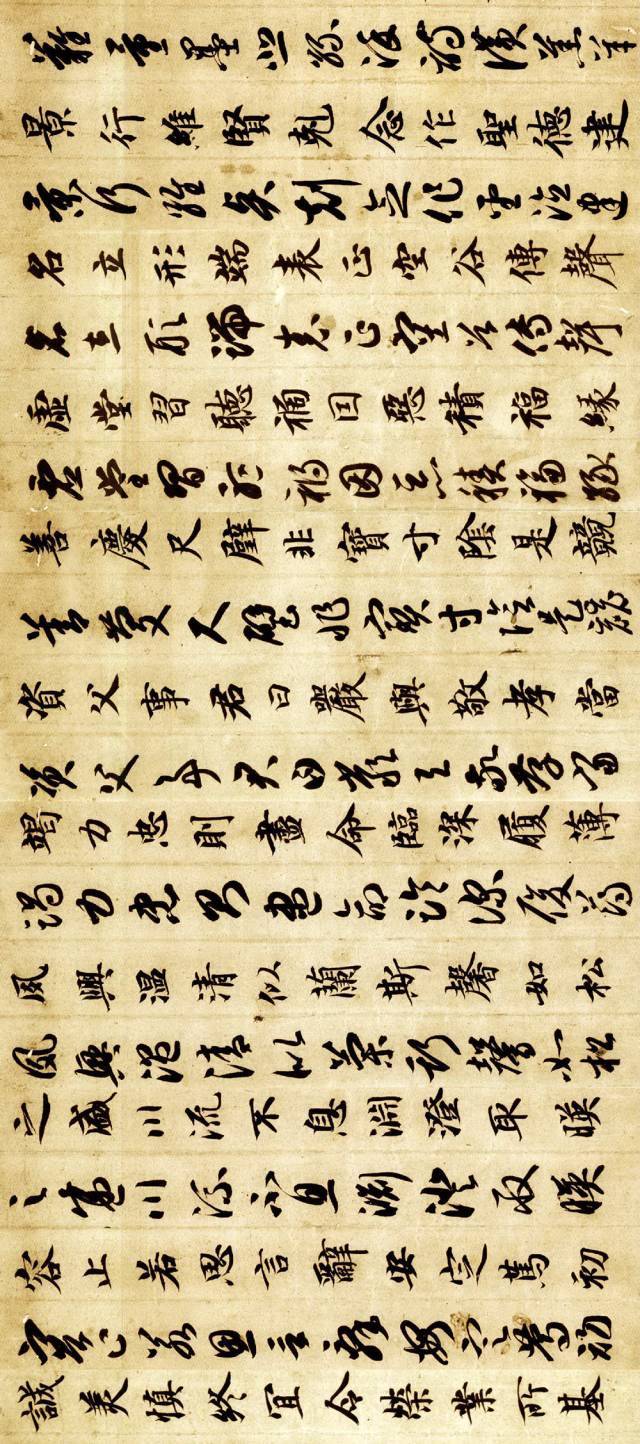 難量墨悲絲染詩讚羔羊
景行維賢剋念作聖德建
景行維賢剋念作聖德建
名立形端表正空谷傳聲
名立形端表正空谷傳聲
虛堂習聽禍因惡積福緣
虛堂習聽禍因惡積福緣
善慶尺璧非寶寸陰是競
善慶尺璧非寶寸陰是競
資父事君曰嚴與敬孝當
資父事君曰嚴與敬孝當
竭力忠則盡命臨深履薄
竭力忠則盡命臨深履薄
夙興溫清似蘭斯馨如松
夙興溫清似蘭斯馨如松
之盛川流不息淵澄取暎
之盛川流不息淵澄取暎
容止若思言辭安定篤初
容止若思言辭安定篤初
誠美慎終宜令榮業所基